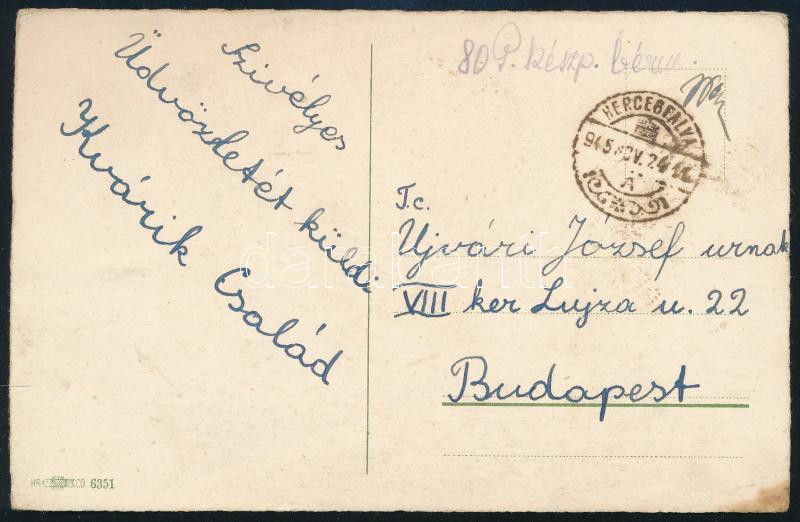 Szivélyes
Üdvözletét küldi
Kvárik Család
80 P. készp. bérm.
HERCEGFALVA
945 NOV. 24
A
T.c.
Ujvári József urnak
VIII ker Lujza u. 22
Budapest
6351